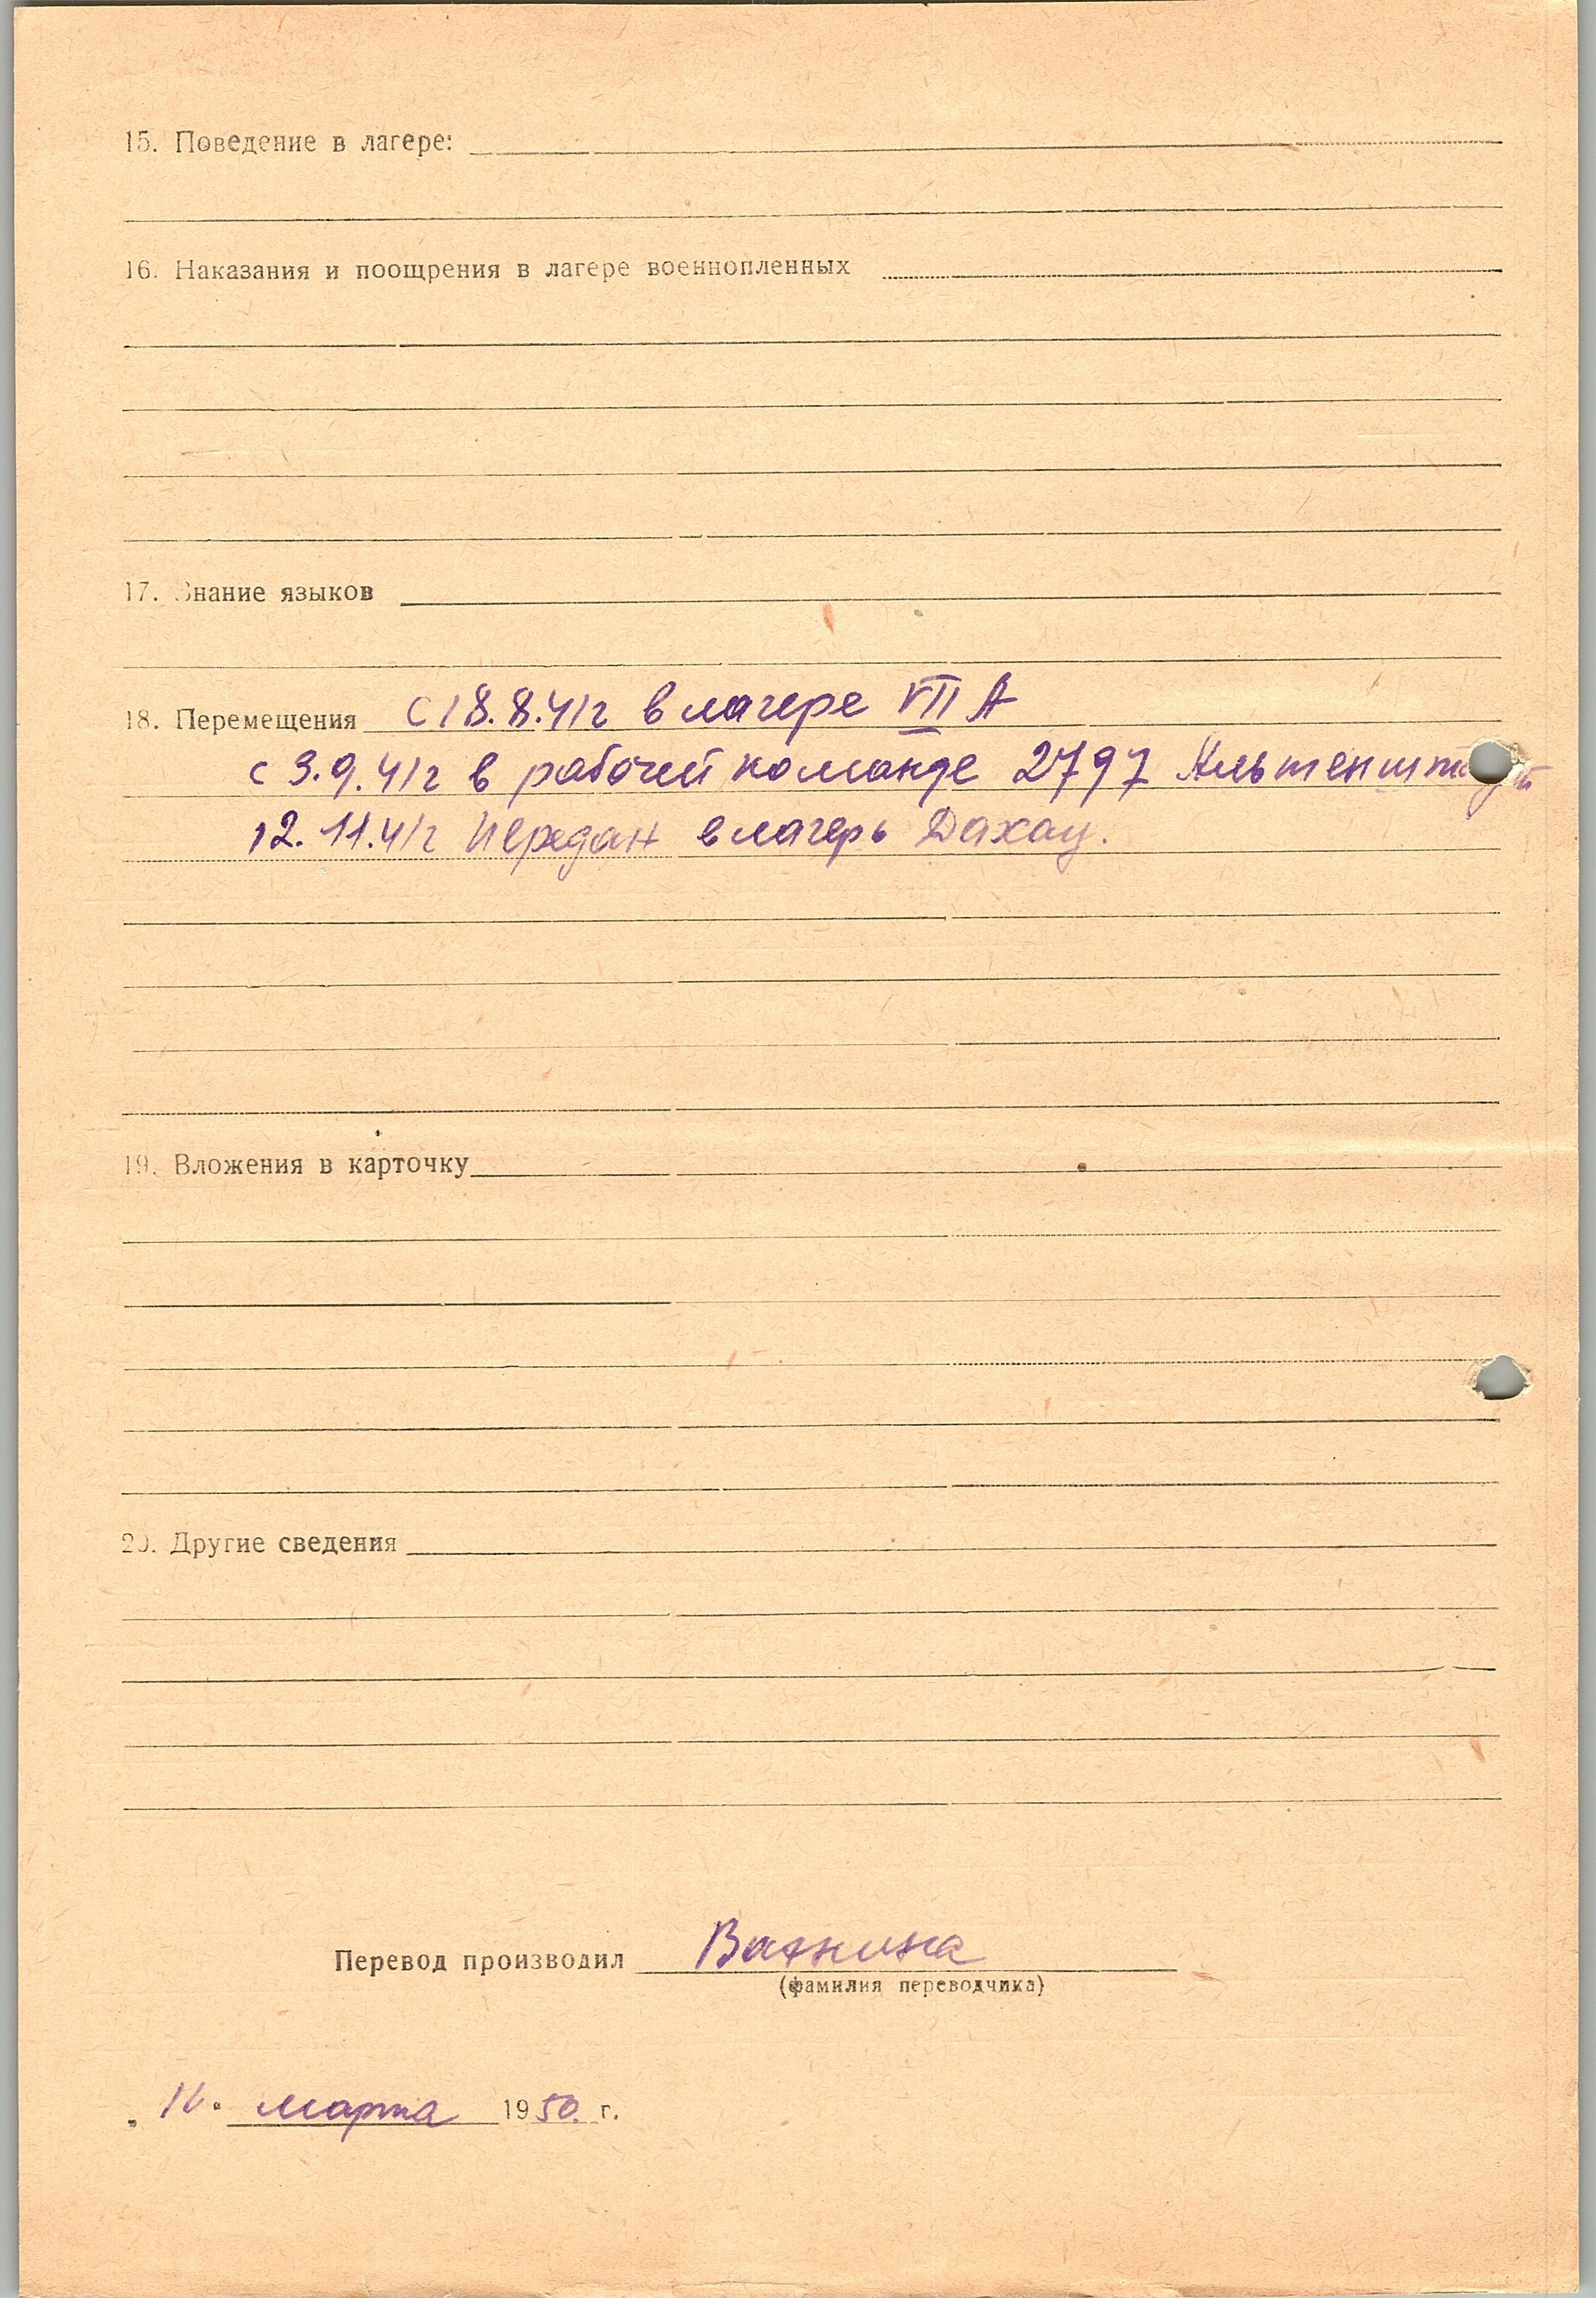 15. Поведение в лагере:
16. Наказания и поощрения в лагере военнопленных
17. Знание языков
18. Перемещения с 18.8.41г в лагере VII А
с 3.9.41г в рабочей команде 2797
12.11.41г передан в лагерь Дахау.
19. Вложения в карточку
20. Другие сведения
Перевод производил
(фамилия переводчика)
марта 1950 г.